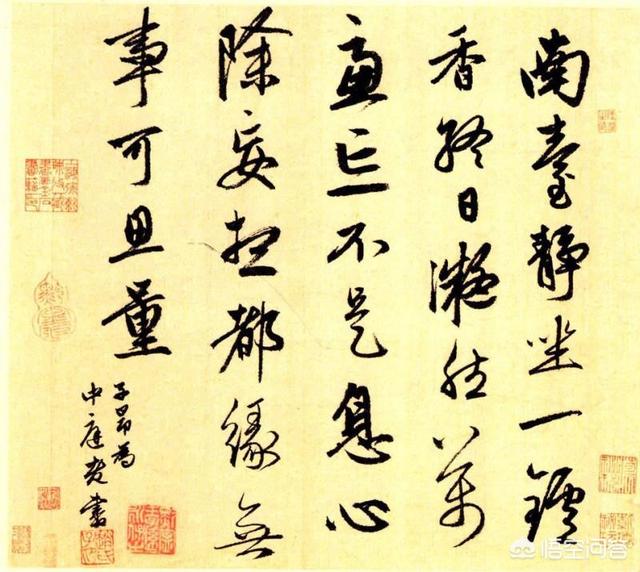 南臺靜坐一鑪
香終日凝然萬
慮亡不是息心
除妄想都緣無
事可思量
子昂為
中庭書
悟空问答